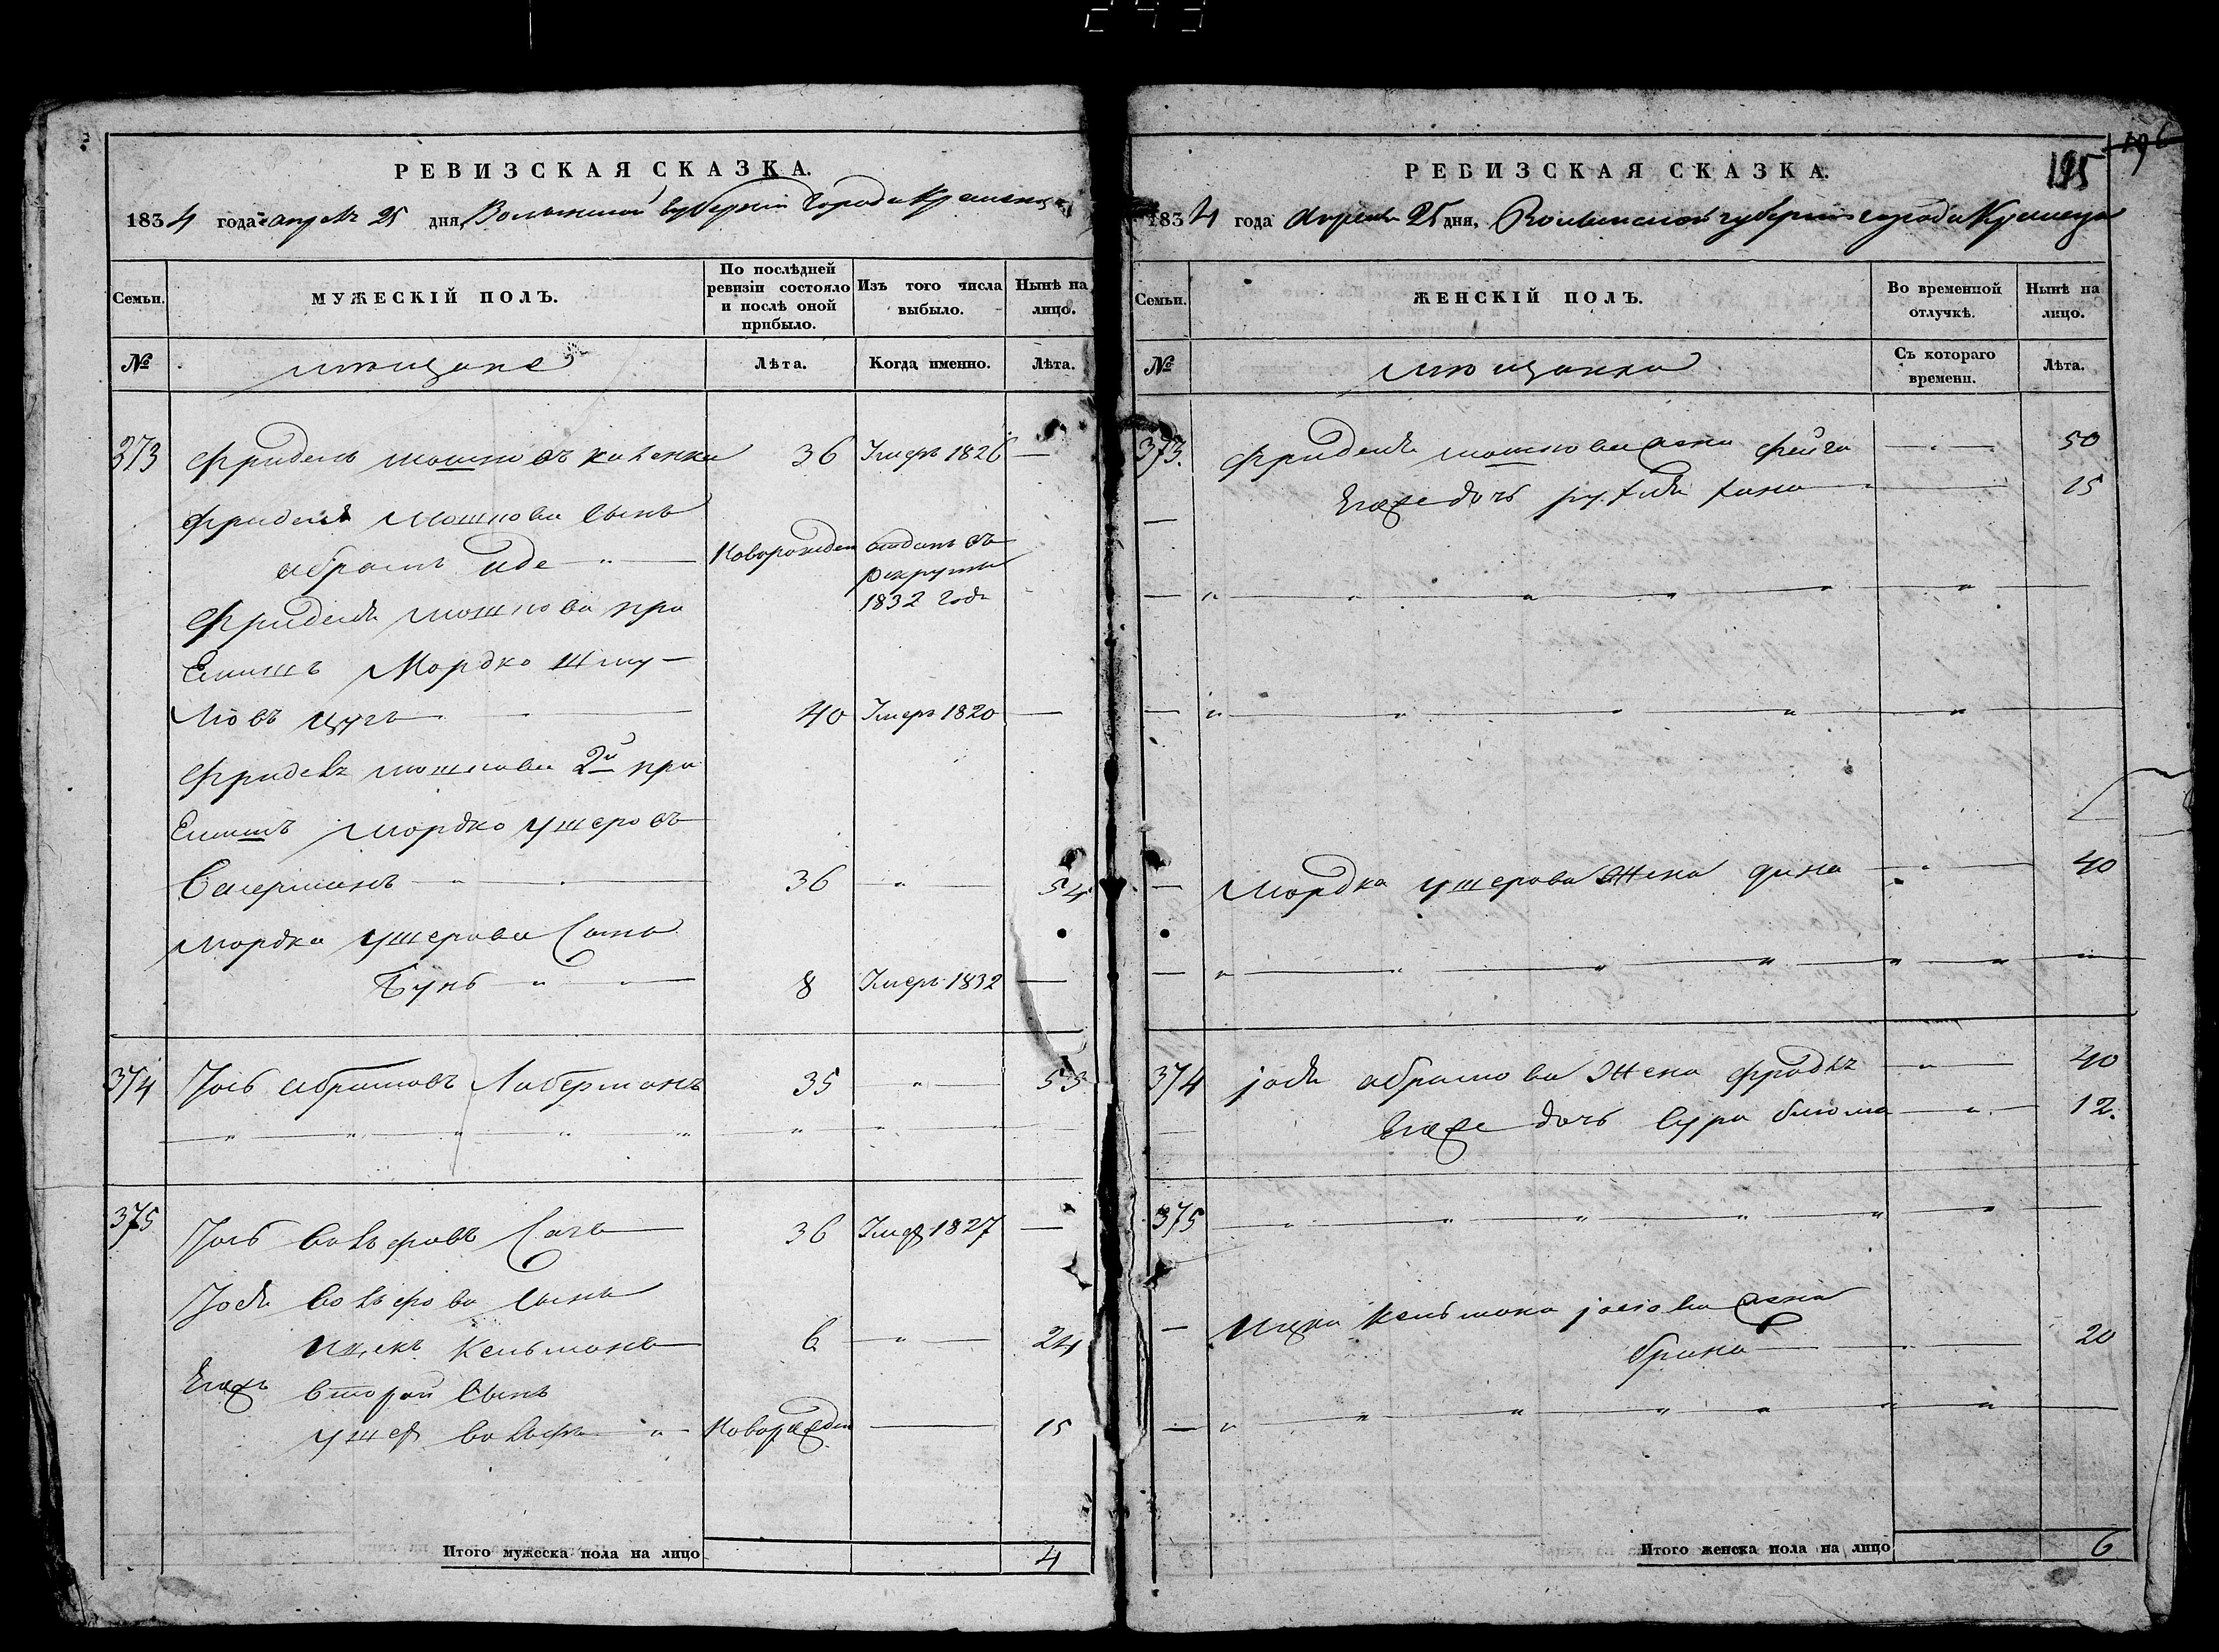 РЕВИЗСКАЯ СКАЗКА.
1834 года апреля 25 дня, Волынской губернии города Кременца
Семьи.
МУЖЕСКІЙ ПОЛЪ.
По послѣдней ревизіи состояло и послѣ оной прибыло.
Изъ того числа выбыло.
Нынѣ на лицо.
№
мещане
Лѣта.
Когда именно.
Лѣта.
373 Фридель Мошковъ 36 Умеръ 1826 —
Фриделя Мошкова сынъ
Абрамъ Иде " — Новорожден отданъ въ
рекруты
1832 года
Фриделя Мошкова при
емышъ Мордко Шму-
левъ 40 Умеръ 1820 —
Фриделя Мошкова 2й при
емышъ Мордко Ушеровъ
36 " 54
Мордка Ушерова сынъ
Бунъ " 8 Умеръ 1832 —
374 Іось Абрамовъ Либерманъ 35 " 53
" " " " " " "
375 Іось Вольфовъ 36 Умер 1827 —
Іося Вольфова сынъ
Ицекъ Кельманъ 6 " 24
Егожъ второй сынъ
Ушер Вольфъ " Новорожден — 15
Итого мужеска пола на лицо 4
195
196
РЕВИЗСКАЯ СКАЗКА.
1834 года Апреля 25 дня, Волынской губернии города Кременца
Семьи.
ЖЕНСКІЙ ПОЛЪ.
Во временной отлучкѣ.
Нынѣ на лицо.
№
мещанки
Съ котораго времени.
Лѣта.
373. Фриделя Мошкова жена Фейга " 50
— Егоже дочь Хана " 15
— " " " " " "
— " " " " "
— Мордка Ушерова жена Дина " 40
— " " " " " " "
374 Іося Абрамова жена Фрадля " 40
— Егоже дочь Сура Блюма " 12.
375 " " " " " "
— Ицка Кельмана Іосіова жена
брина " 20
— " " " " " " "
Итого женска пола на лицо 6